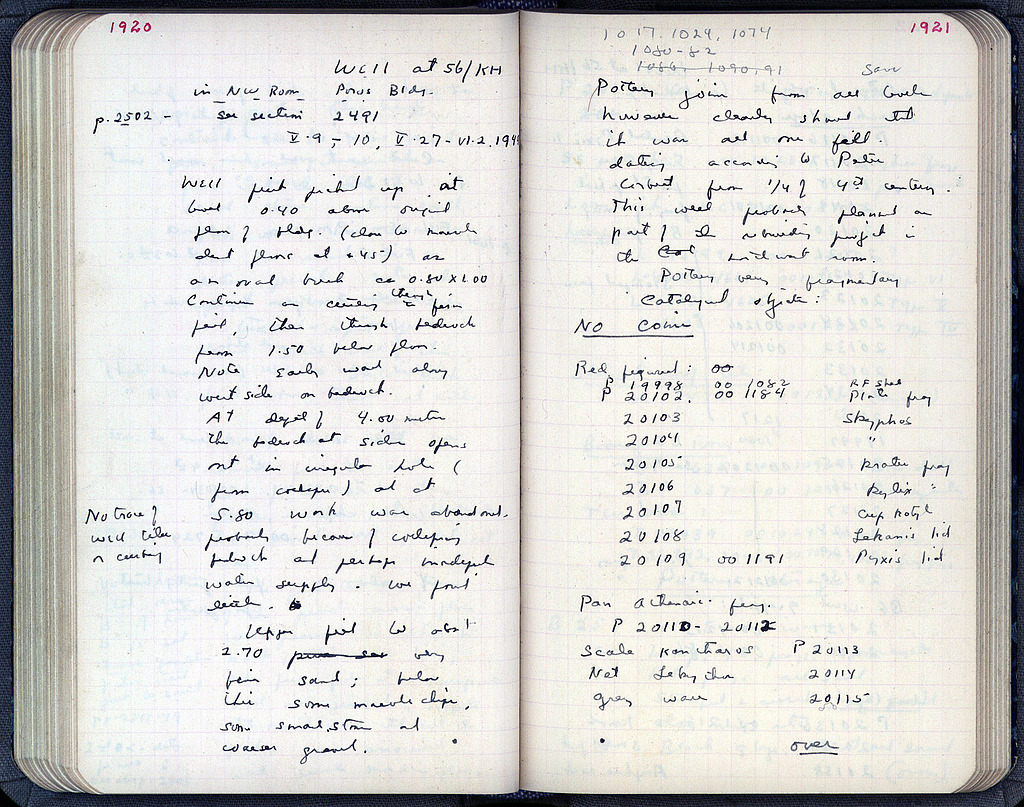 1920
Well at 56/KH
in NW Room Poros Bldg.
p. 2502 - see section 2491
V.9, - 10, V.27 - VI.2, 194
Well first picked up at
level 0.40 above original
floor of bldg. (close to marble
chip floors at +45) as
an oval break ca 0.80 X 1.00
Continues as cutting through firm
fill, then through bedrock
from 1.50 below floor.
Note early wall along
west side on bedrock.
At depth of 4.00 meters
the bedrock at sides opens
out in irregular hole (
from collapse) and at
5.80 work was abandoned,
No trace of
well tiles
or curbing
probably because of collapsing
bedrock and perhaps inadequate
water supply. We found
little.
Upper fill to about
2.70 very
fine sand; below
this some marble chips,
some small stones and
coarser gravel.
1921
1017. 1029, 1074
1080-82
1086, 1090, 91
Pottery joins from all levels
however clearly showed that
it was all one fill.
dating according to Peter
Corbett from 1/4 of 4th century.
This well probably planned as
part of the rebuilding project in
the southwest room.
Pottery very fragmentary
Catalogued objects:
No Coins
Red figured: OO
P 19998 OO 1082 RF Sherd
P 20102. OO 1184 Plate frag
20103 Skyphos
20104 "
20105 Krater frag
20106 Kylix "
20107 Cup Kotyle
20108 Lekanis lid
20109 OO 1191 Pyxis lid
Panathenaic frag.
P 20110 - 20112
Scale Kantharos P 20113
Net Lekythos 20114
gray ware 20115
over